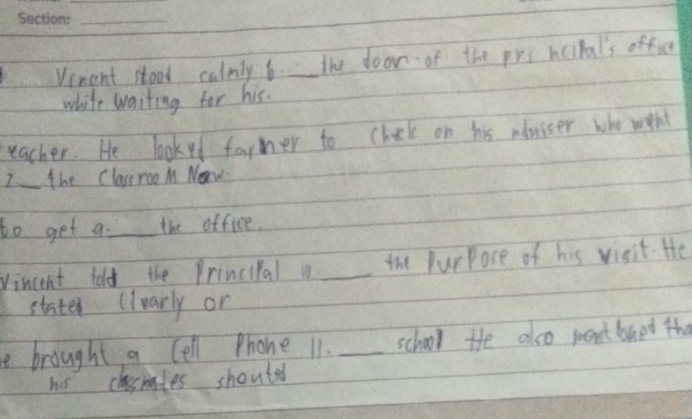 Section:
Vincent stood calmly 6. __ the door of the principal's office
while waiting for his.
eacher. He looked farther to check on his adviser who went
7__ the Classroom Now.
to get 9.__ the office.
Vincent told the Principal 10.__ the Purpose of his visit. He
stated Clearly or
e brought a Cell Phone 11.__ school He also mentioned tha
his classmates shouted